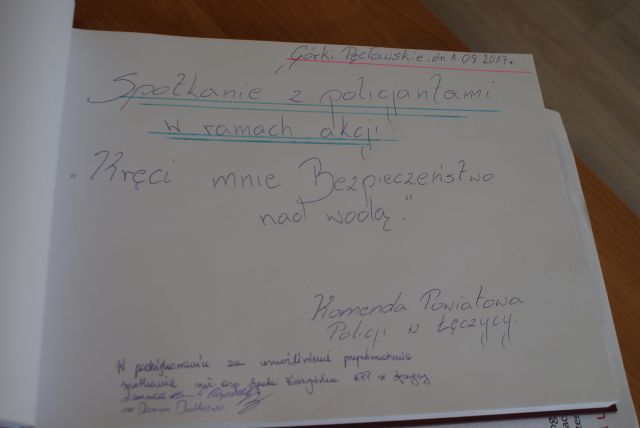 Górki Pęcławskie, dn. 1.09.2017r.
Spotkanie z policjantami
w ramach akcji:
"Kręci mnie Bezpieczeństwo
nad wodą."
Komenda Powiatowa
Policji w Łęczycy
W podziękowaniu za umożliwienie przeprowadzenia
spotkania KPP w Łęczycy